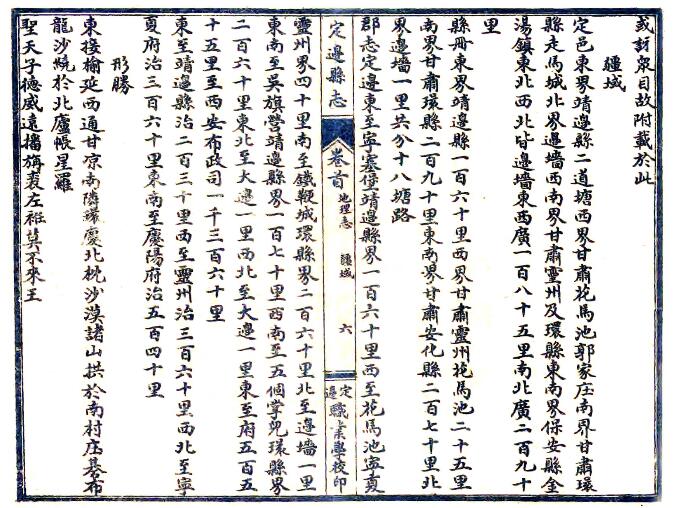 或訝眾目故附載於此
疆域
定邑東界靖邊縣二道塘西界甘肅花馬池郭家庄南界甘肅環
縣走馬城北界邊墻西南界甘肅靈州及環縣東南界保安縣金
湯鎮東北西北皆邊墻東西廣一百八十五里南北廣二百九十
里
縣冊東界靖邊縣一百六十里西界甘肅靈州花馬池二十五里
南界甘肅環縣二百九十里東南界甘肅安化縣二百七十里北
界邊墻一里共分十八塘路
郡志定邊東至寧塞堡靖邊縣界一百六十里西至花馬池寧夏
定邊縣志
卷首
地理志 疆域 六
定邊職業學校印
靈州界四十里南至鐵鞭城環縣界二百六十里北至邊墻一里
東南至吳旗營靖邊縣界一百七十里西南至五個掌兒環縣界
二百六十里東北至大邊一里西北至大邊一里東至府五百五
十五里至西安布政司一千三百六十里
東至靖邊縣治二百三十里西至靈州治三百六十里西北至寧
夏府治三百六十里東南至慶陽府治五百四十里
形勝
東接榆延西通甘凉南隣環慶北枕沙漠諸山拱於南村庄碁布
龍沙繞於北廬帳星羅
聖天子德威遠播旃裘左袵莫不來王